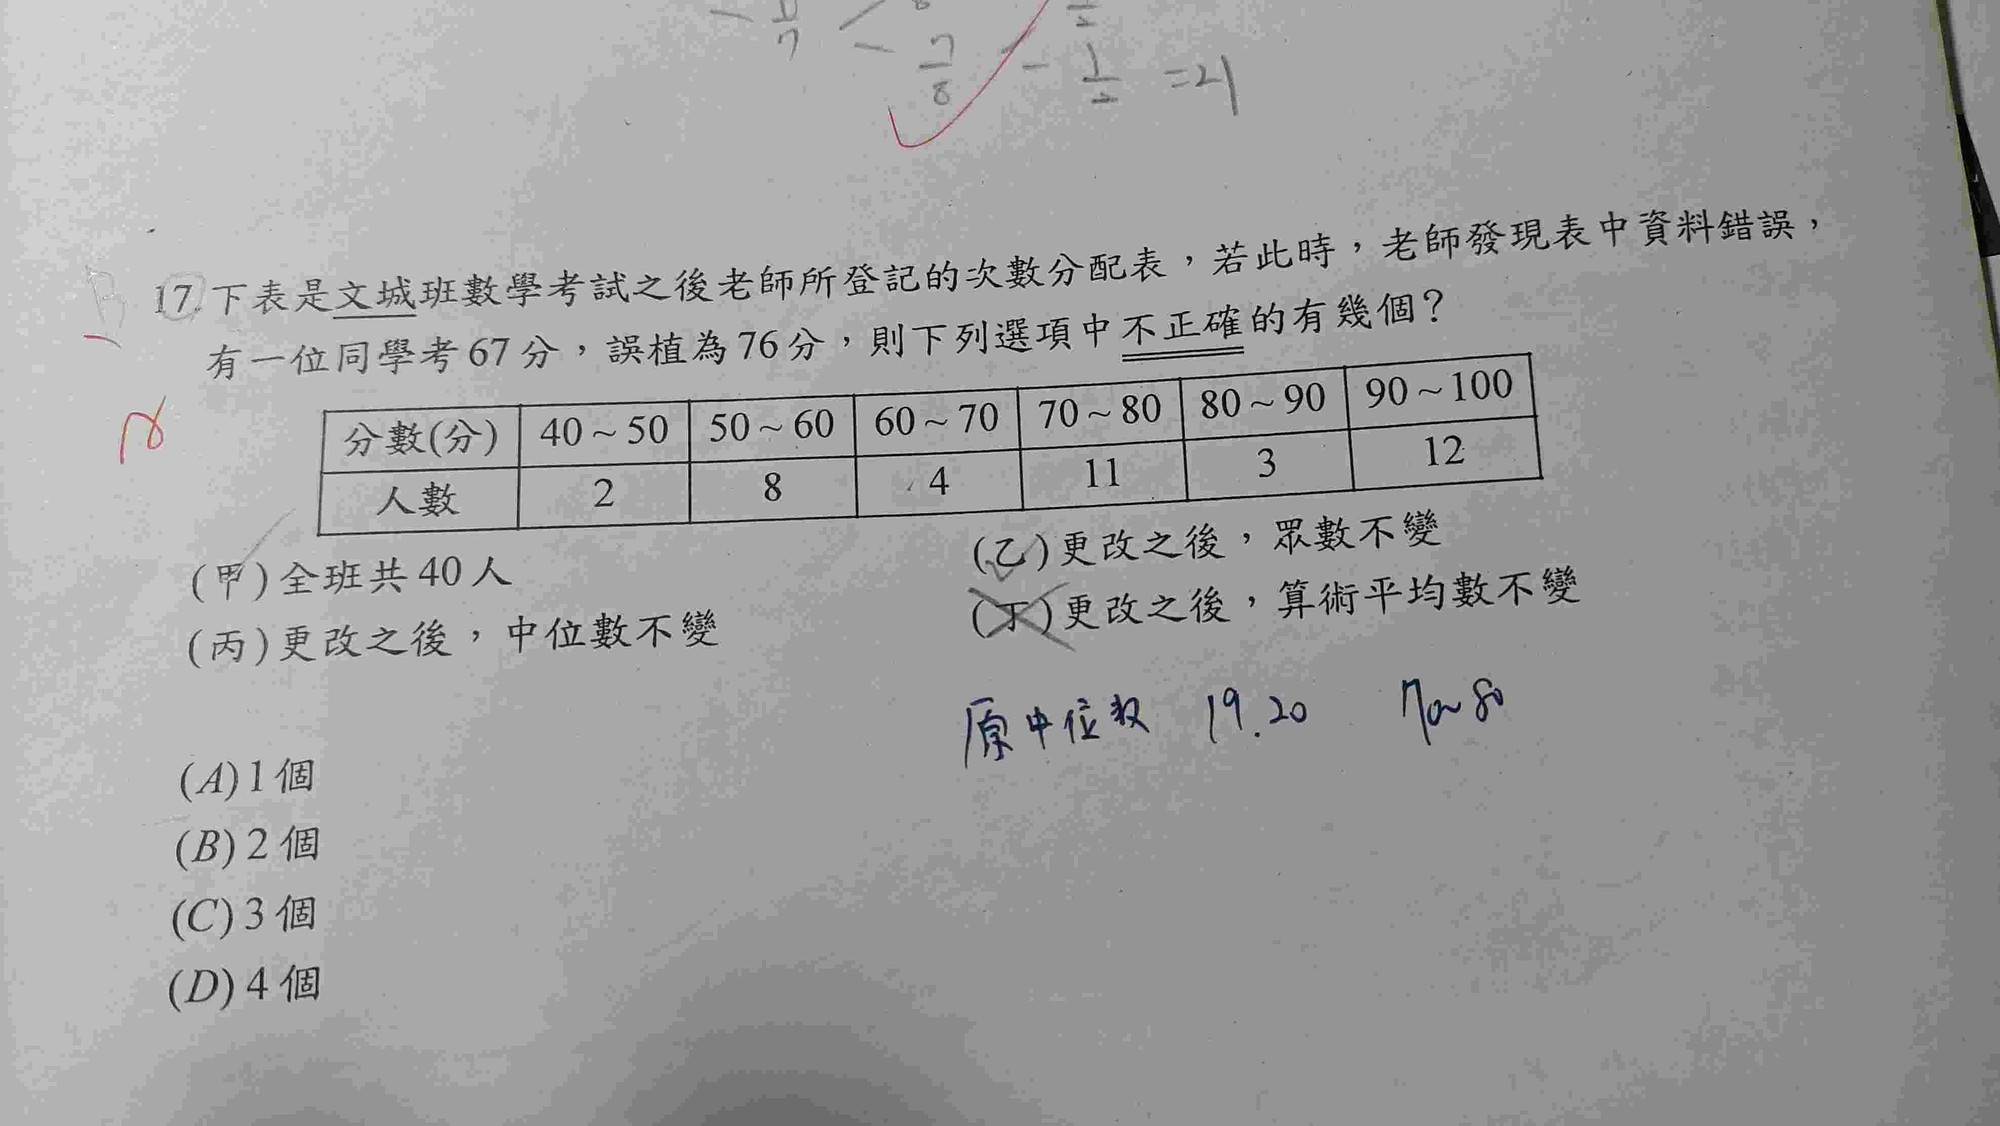 7
7
8
1
2
=21
17.下表是文城班數學考試之後老師所登記的次數分配表，若此時，老師發現表中資料錯誤，
有一位同學考67分，誤植為76分，則下列選項中不正確的有幾個？
分數(分) 40～50 50～60 60～70 70～80 80～90 90～100
人數 2 8 4 11 3 12
(甲)全班共40人 (乙)更改之後，眾數不變
(丙)更改之後，中位數不變 (丁)更改之後，算術平均數不變
原中位数 19.20 70~80
(A)1個
(B)2個
(C)3個
(D)4個